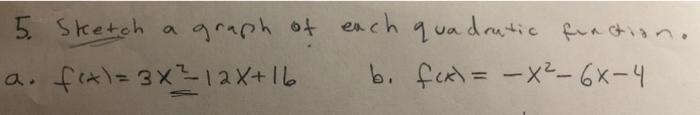 5. Sketch a graph of each quadratic function.
a. f(x)=3x²-12x+16 b. f(x)= -x²-6x-4